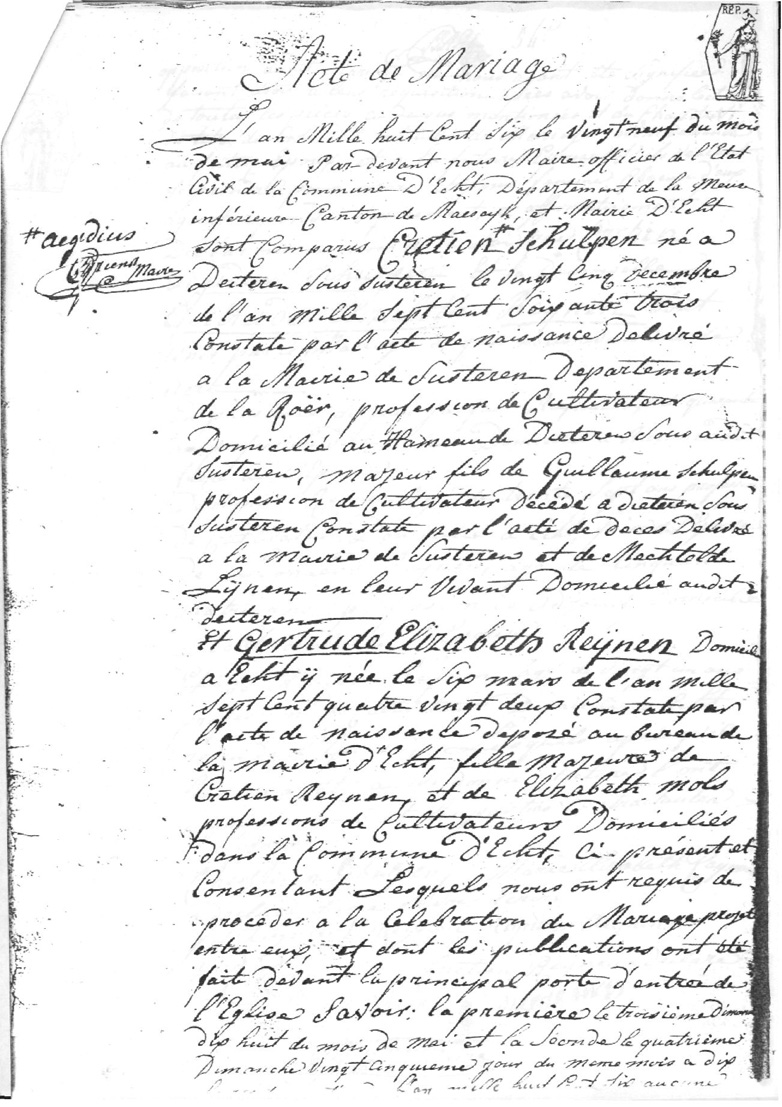 REP.
Acte de Mariage
L'an Mille huit Cent Six le vingt neuf du mois
de mai Par devant nous Maire officier de l'Etat
Civil de la Commune D'Echt, Département de la Meuse
inférieure Canton de Maeseyk, et Mairie D'Echt
# aegidius
sont Comparus Cretien # Schulpen né a
Maire
Dieteren Sous Susteren le vingt Cinq Decembre
de l'an Mille Sept Cent Soixante trois
Constate par l'acte de naissance Delivré
a la Mairie de Susteren Departement
de la Roër, profession de Cultivateur
Domicilié au Hameau de Dieteren Sous audit
Susteren, majeur fils de Guillaume Schulpen
profession de Cultivateur Décédé a dieteren Sous
Susteren Constate par l'acte de deces Delivré
a la Mairie de Susteren et de Mechtolde
Lijnen, en leur Vivant Domicilié audit
dieteren
Et Gertrude Elizabeth Reijnen Domicil
a Echt ij née le Six mars de l'an mille
Sept Cent quatre vingt deux Constate par
l'acte de naissance deposé au bureau de
la mairie D'Echt, fille Majeure de
Cretien Reynen, et de Elizabeth mols
professions de Cultivateurs Domiciliés
dans la Commune D'Echt, Ci présent et
Consentant Lesquels nous ont requis de
procéder a la Celebration du Mariage projet
entre eux, et dont les publications ont été
fait devant la principal porte d'entrée de
l'Eglise Savoir: la première le troisième Diman
dix huit du mois de Mai et la Seconde le quatrième
Dimanche Vingt Cinquieme jour du meme mois a dix
l'an mille huit Cent Six aucune